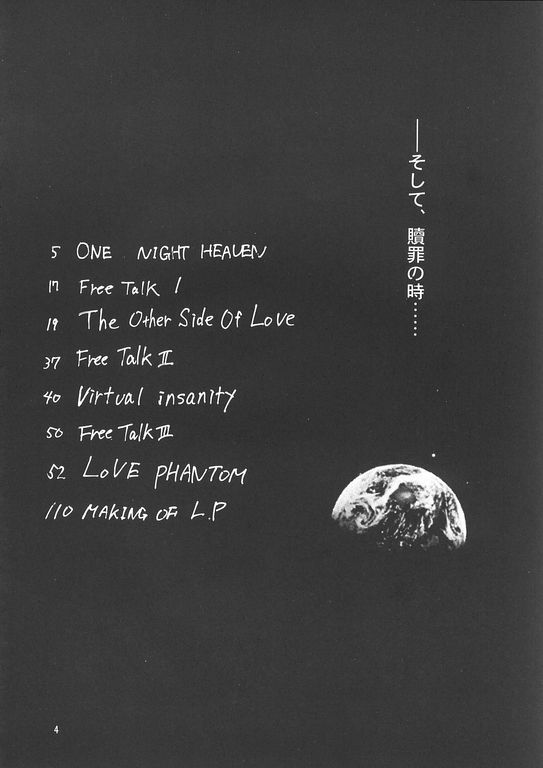 ——そして、贖罪の時……
5 ONE NIGHT HEAVEN
17 Free Talk I
19 The Other Side Of Love
37 Free Talk II
40 Virtual insanity
50 Free Talk III
52 LOVE PHANTOM
110 MAKING OF L.P
4